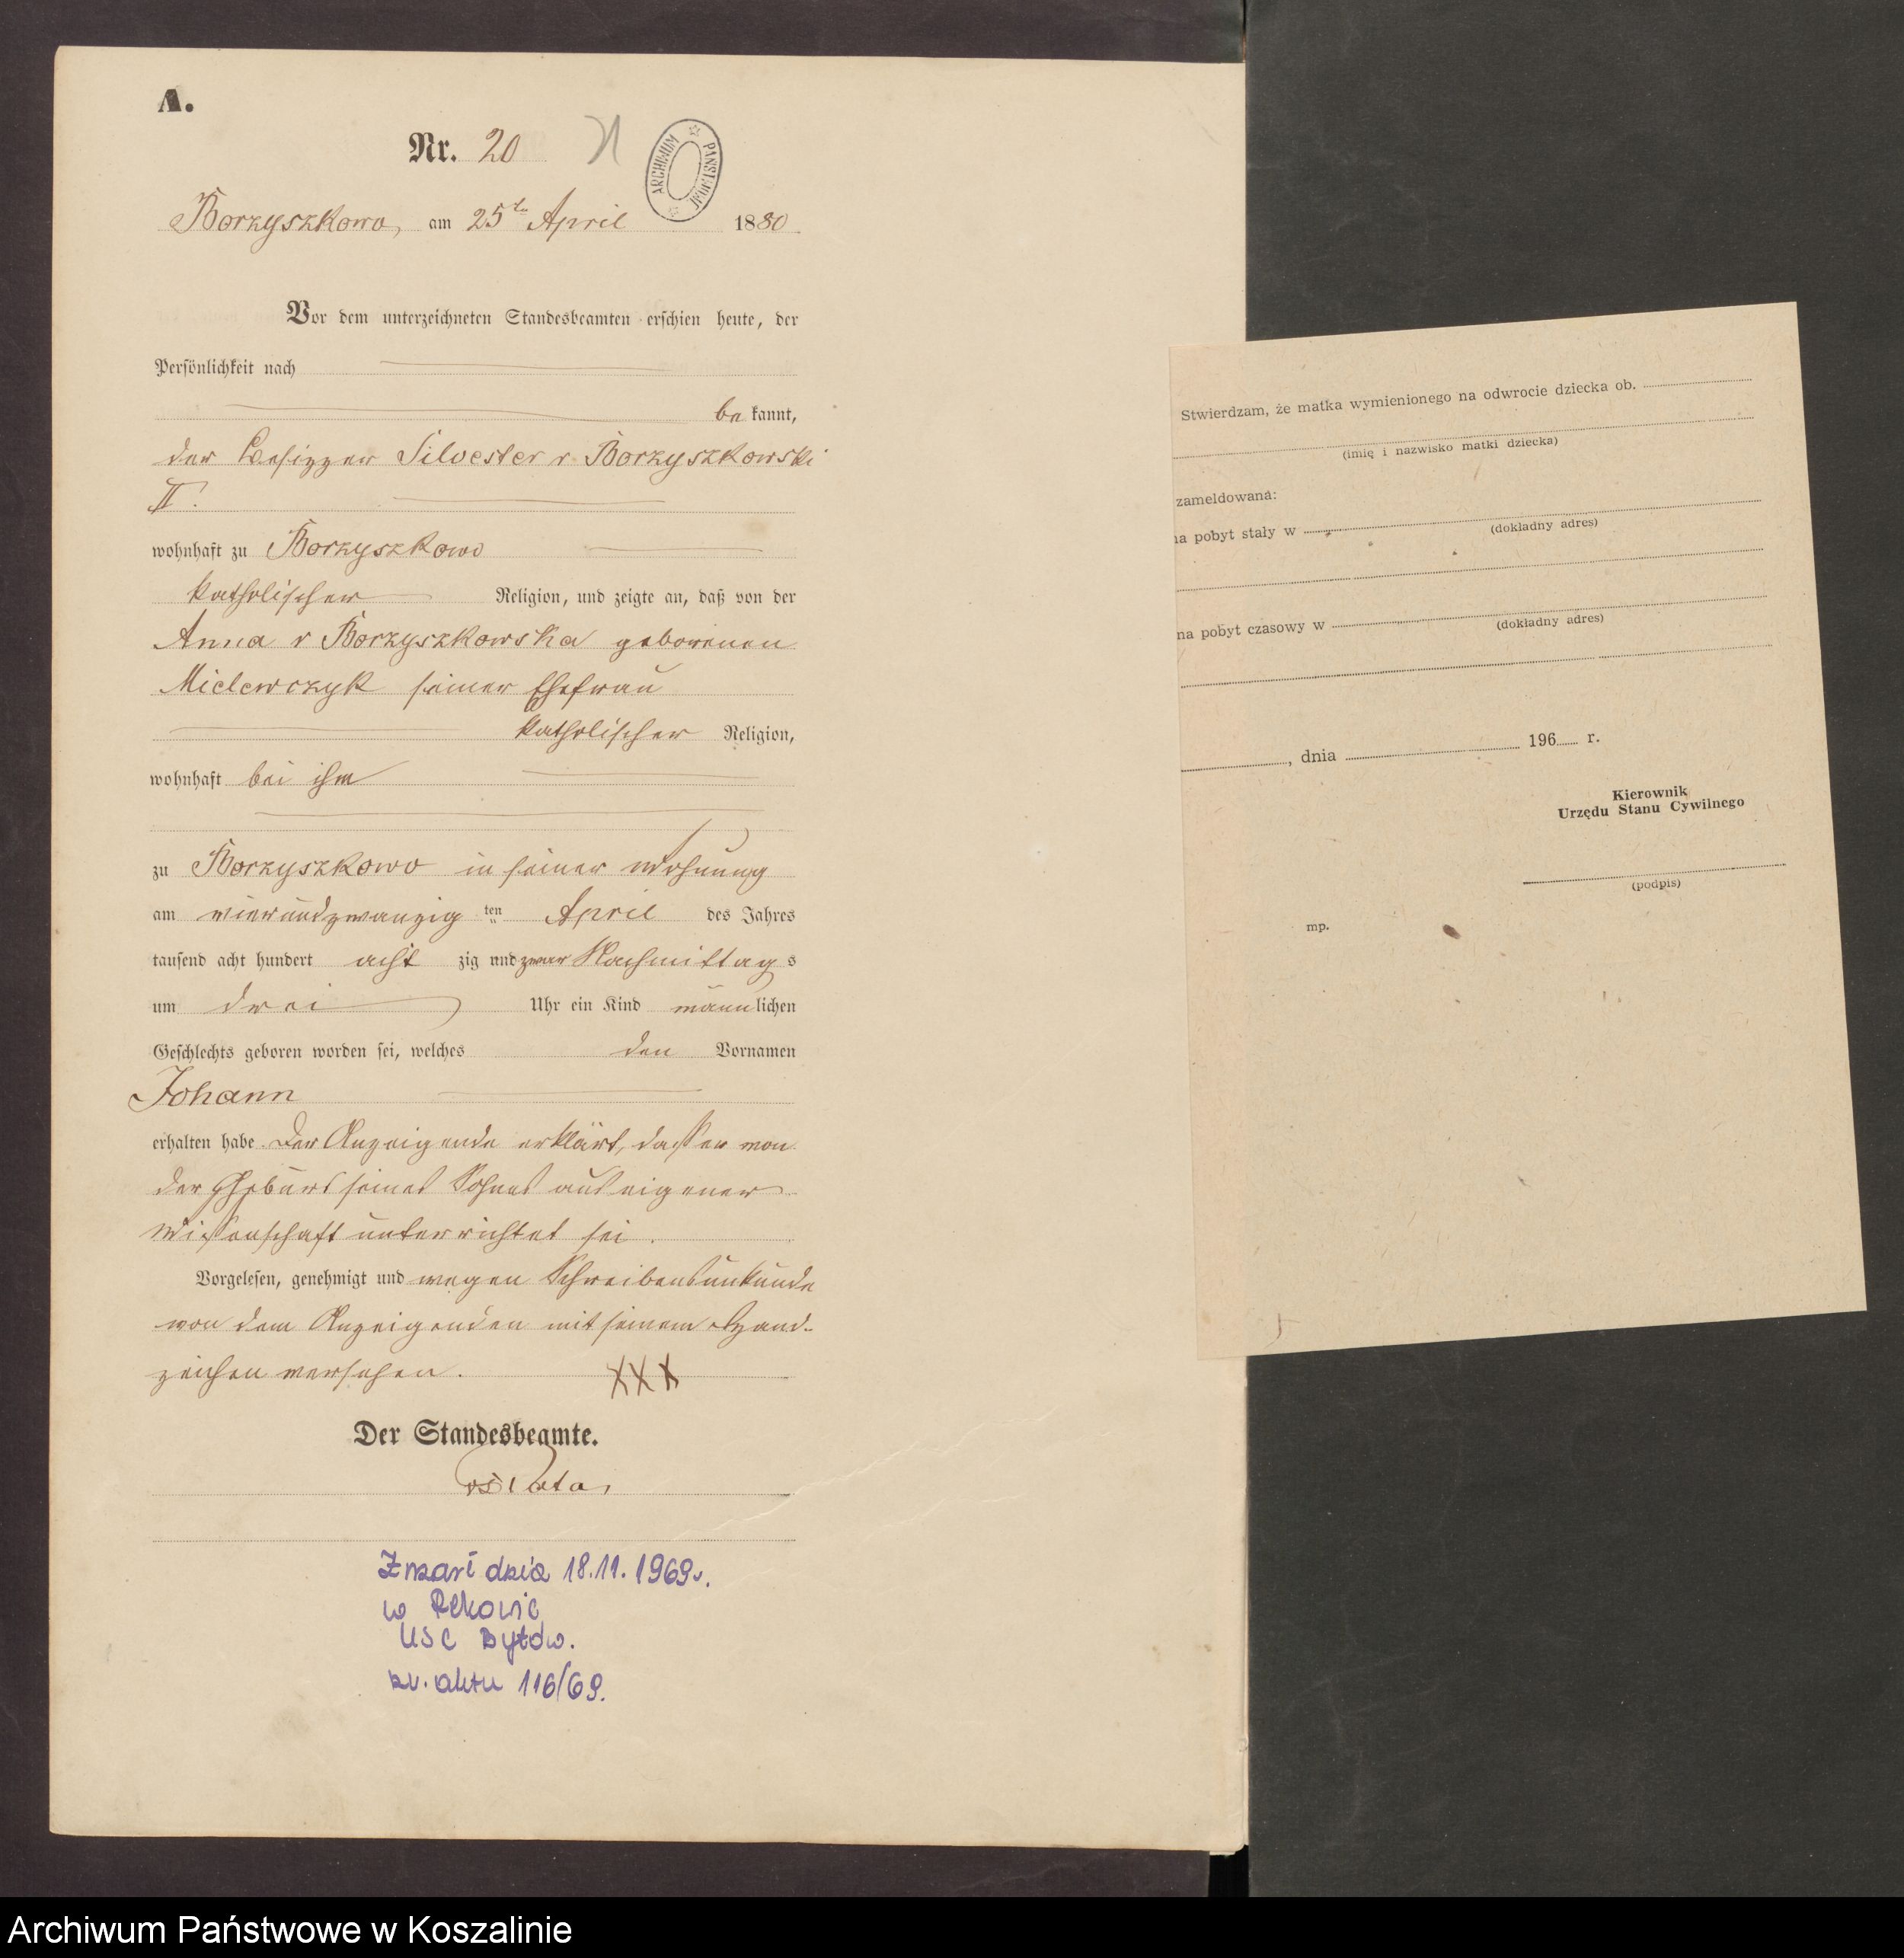 A.
Nr. 20
ARCHIWUM PAŃSTWOWE
Borzyszkowo, am 25ten April 1880.
Vor dem unterzeichneten Standesbeamten erschien heute, der
Persönlichkeit nach
be kannt,
der Besitzer Silvester v Borzyszkowski
II.
wohnhaft zu Borzyszkowo
katholischer Religion, und zeigte an, daß von der
Anna v Borzyszkowska geborenen
Mielewczyk seiner Ehefrau
katholischer Religion,
wohnhaft bei ihm
zu Borzyszkowo in seiner Wohnung
am vierundzwanzig ten April des Jahres
tausend acht hundert acht zig und zwar Nachmittag s
um drei Uhr ein Kind männ lichen
Geschlechts geboren worden sei, welches den Vornamen
Johann
erhalten habe. Der Anzeigende erklärt, daß er von
der Geburt seines Sohnes aus eigener
Wissenschaft unterrichtet sei.
Vorgelesen, genehmigt und wegen Schreibensunkunde
von dem Anzeigenden mit seinem Hand-
zeichen versehen. XXX
Der Standesbeamte.
Zmarł dnia 18.11.1969r.
w Rekowie
USC Bytów.
nr. aktu 116/69.
Stwierdzam, że matka wymienionego na odwrocie dziecka ob.
(imię i nazwisko matki dziecka)
zameldowana:
na pobyt stały w
(dokładny adres)
na pobyt czasowy w
(dokładny adres)
, dnia 196 r.
Kierownik
Urzędu Stanu Cywilnego
(podpis)
mp.
Archiwum Państwowe w Koszalinie